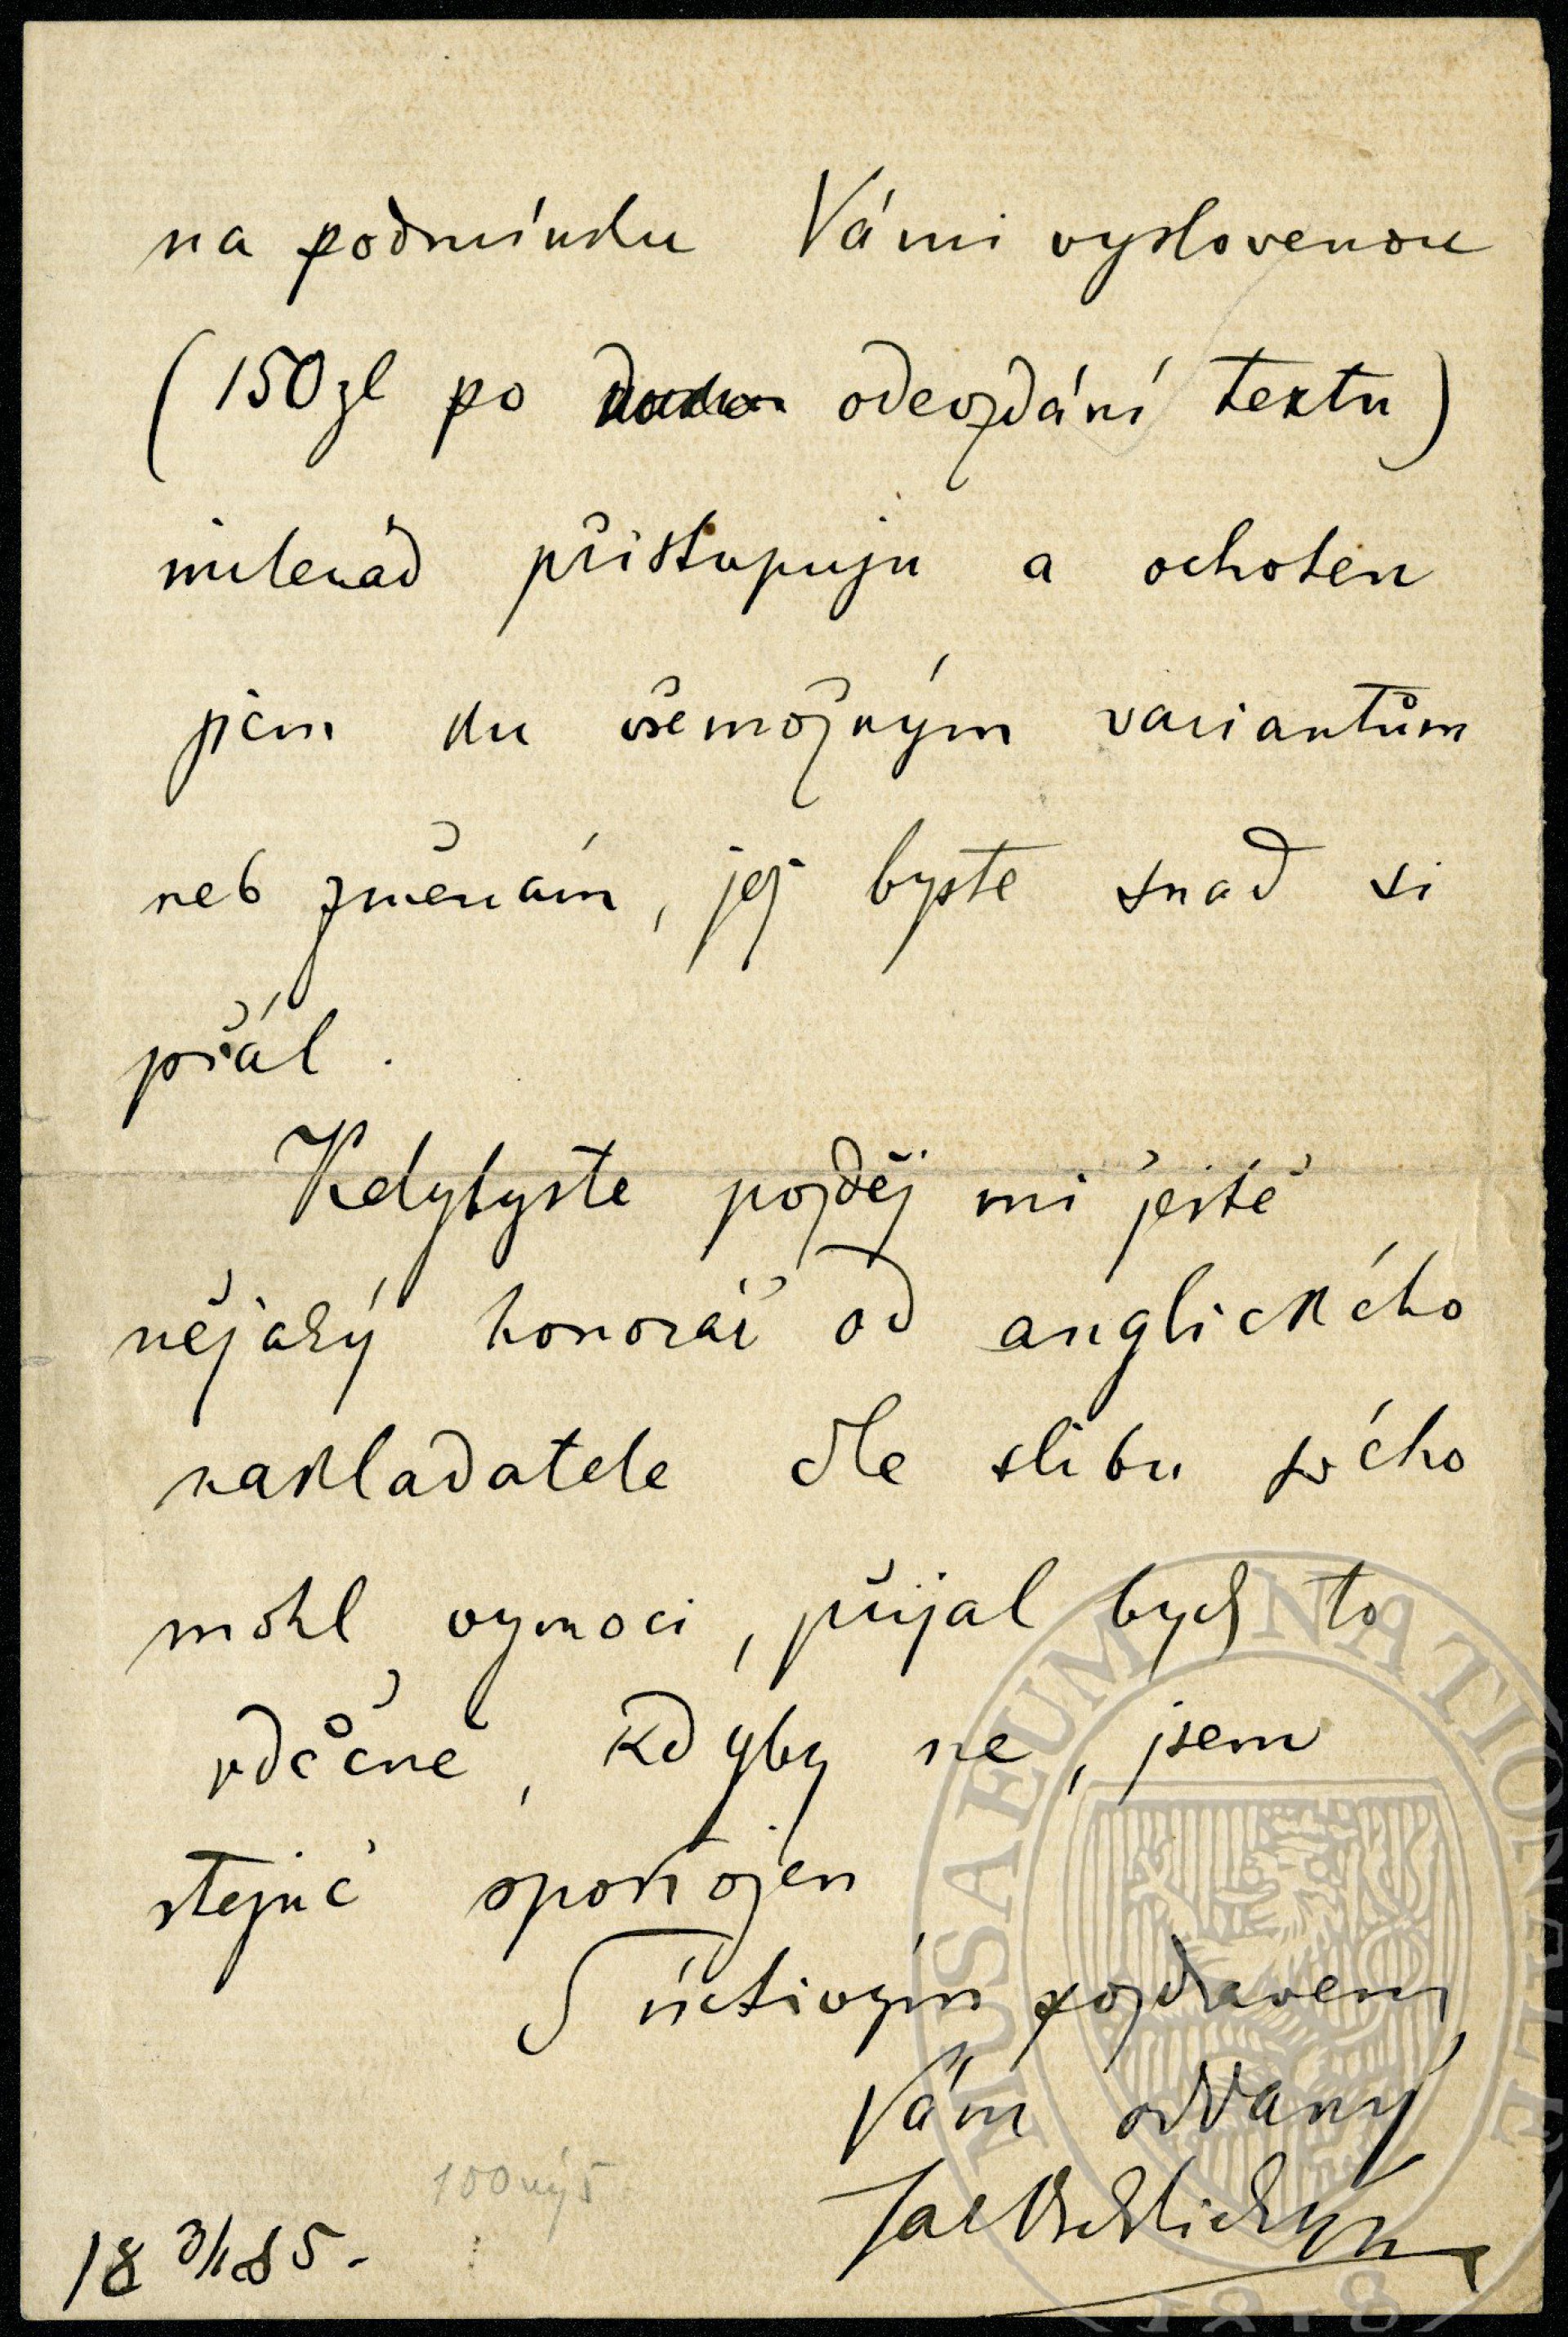 na podmínku Vámi vyslovenou
(150 zl po odevzdání textu)
milerád přistupuju a ochoten
jsem ku všemožným variantům
neb změnám, jež byste snad si
přál.
Kdybyste pozděj mi ještě
nějaký honorář od anglického
nakladatele dle slibu svého
mohl vymoci, přijal bych to
vděčně, kdyby ne, jsem
stejně spokojen
S úctivým pozdravem
Vám oddaný
Jar Vrchlický
18 3/1 85.
MUSAEUM NATIONALE
1818